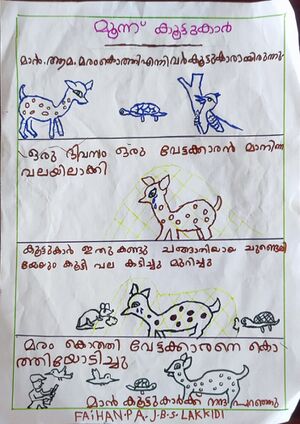 മൂന്ന് കൂട്ടുകാർ
മാൻ, ആമ, മരംകൊത്തി എന്നിവർ കൂട്ടുകാരായിരുന്നു
ഒരു ദിവസം ഒരു വേട്ടക്കാരൻ മാനിനെ
വലയിലാക്കി
കൂട്ടുകാർ ഇതു കണ്ടു ചങ്ങാതിയായ ചുണ്ടെലി
യേയും കൂട്ടി വല കടിച്ചു മുറിച്ചു
മരം കൊത്തി വേട്ടക്കാരനെ കൊ
ത്തിയോടിച്ചു
മാൻ കൂട്ടുകാർക്ക് നന്ദി പറഞ്ഞു
FAIHAN.P.A.J.B.S LAKKIDI